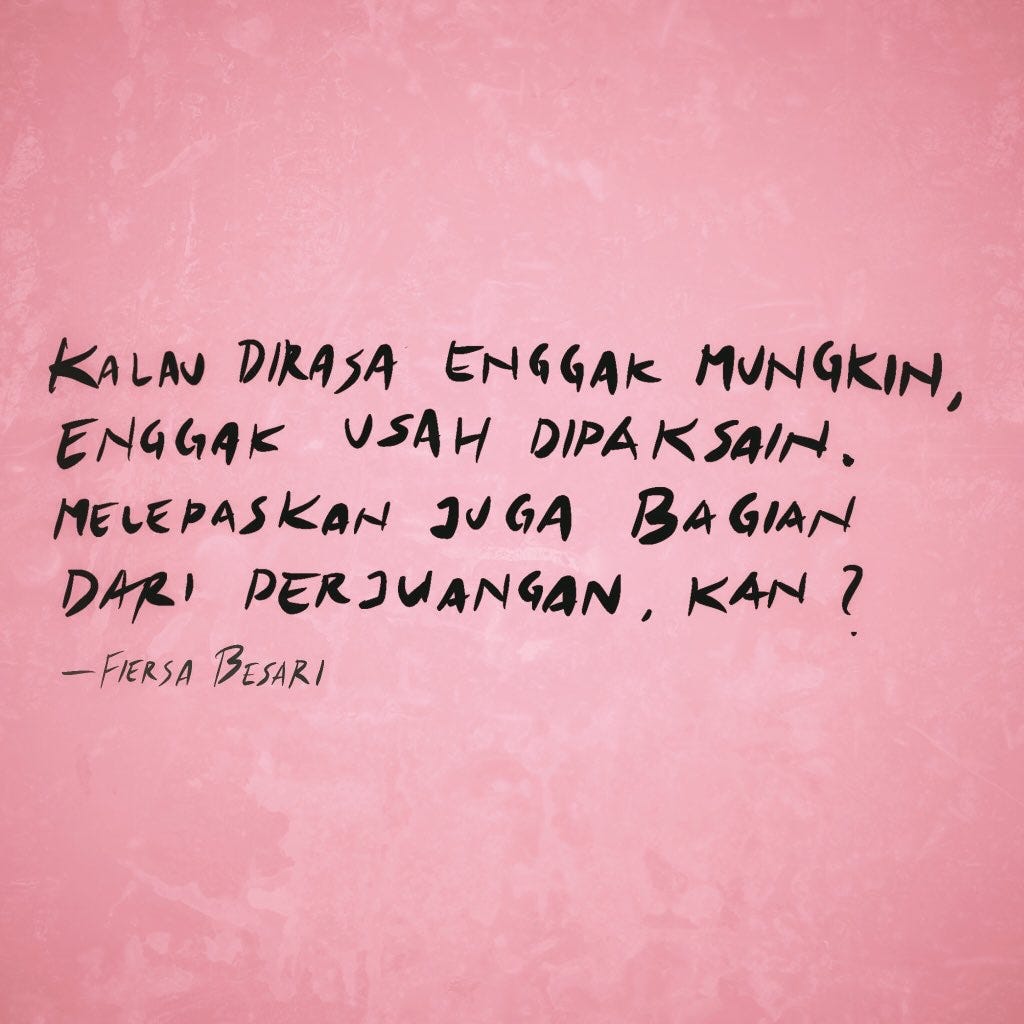 KALAU DIRASA ENGGAK MUNGKIN,
ENGGAK USAH DIPAKSAIN.
MELEPASKAN JUGA BAGIAN
DARI PERJUANGAN, KAN?
—FIERSA BESARI